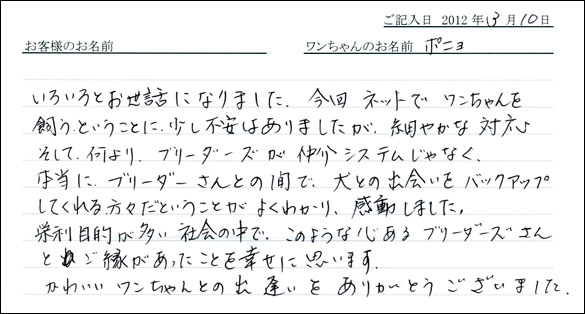 ご記入日 2012年 3月10日
お客様のお名前 ワンちゃんのお名前 ポニョ
いろいろとお世話になりました。今回 ネットで ワンちゃんを
飼う、ということに、少し不安はありましたが、細やかな対応
そして、何より、ブリーダーズが仲介システムじゃなく、
本当に、ブリーダーさんとの間で、犬との出会いをバックアップ
してくれる方々だということがよくわかり、感動しました。
営利目的が多い社会の中で、このような心ある ブリーダーズさん
と ご縁があったことを幸せに思います。
かわいい ワンちゃんとの出逢いを ありがとう ございました。